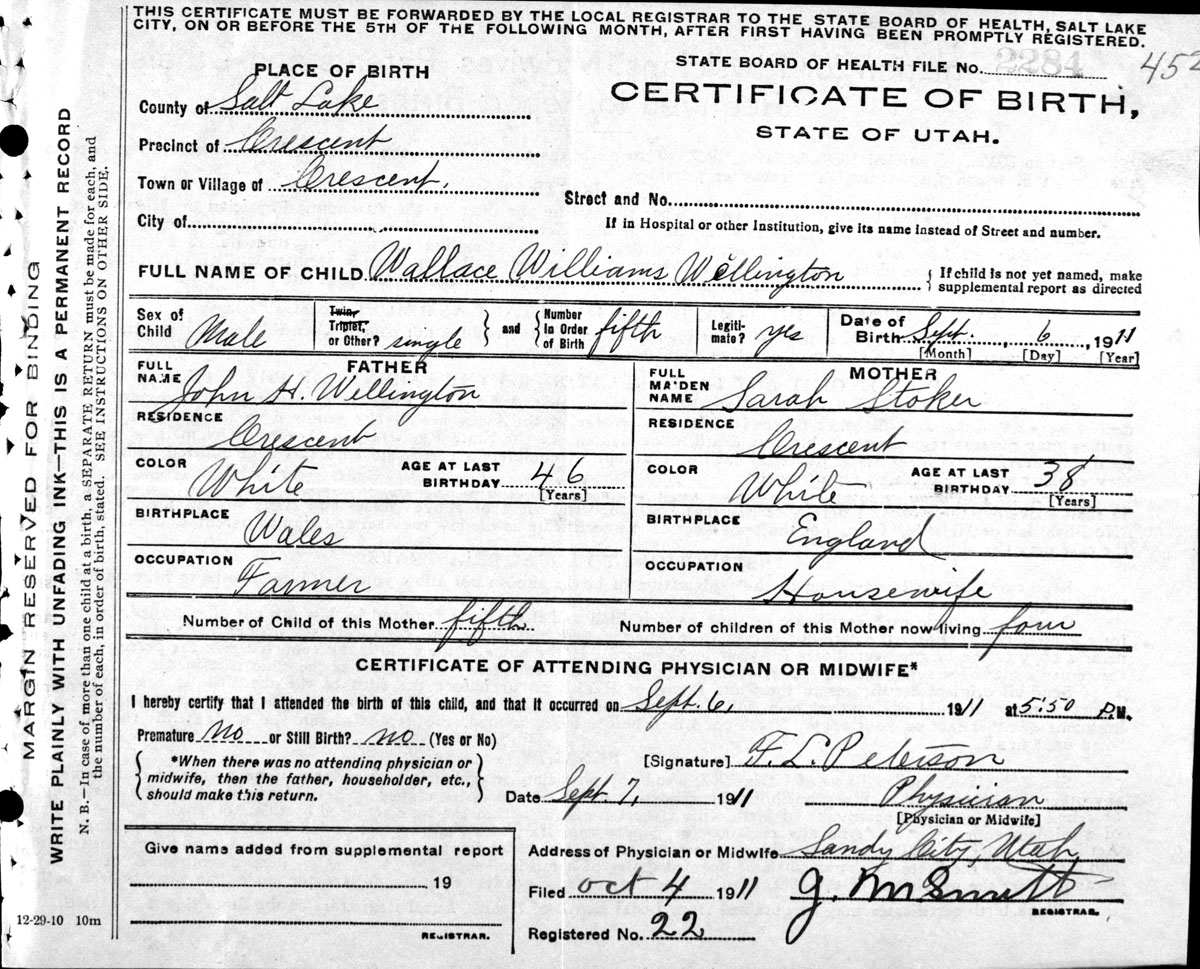 THIS CERTIFICATE MUST BE FORWARDED BY THE LOCAL REGISTRAR TO THE STATE BOARD OF HEALTH, SALT LAKE
CITY, ON OR BEFORE THE 5TH OF THE FOLLOWING MONTH, AFTER FIRST HAVING BEEN PROMPTLY REGISTERED.
STATE BOARD OF HEALTH FILE No. 2284 452
CERTIFICATE OF BIRTH,
STATE OF UTAH.
PLACE OF BIRTH
County of Salt Lake
Precinct of Crescent
Town or Village of Crescent.
Street and No.
City of
If in Hospital or other Institution, give its name instead of Street and number.
FULL NAME OF CHILD Wallace Williams Wellington { If child is not yet named, make
supplemental report as directed
Sex of Child Male Twin, Triplet, or Other? single } and { Number in Order of Birth fifth Legiti-mate? yes Date of Birth Sept. 6, 1911
[Month] [Day] [Year]
FATHER MOTHER
FULL NAME John H. Wellington FULL MAIDEN NAME Sarah Stoker
RESIDENCE Crescent RESIDENCE Crescent
COLOR White AGE AT LAST BIRTHDAY 46 [Years] COLOR White AGE AT LAST BIRTHDAY 38 [Years]
BIRTHPLACE Wales BIRTHPLACE England
OCCUPATION Farmer OCCUPATION Housewife
Number of Child of this Mother fifth Number of children of this Mother now living four
CERTIFICATE OF ATTENDING PHYSICIAN OR MIDWIFE*
I hereby certify that I attended the birth of this child, and that it occurred on Sept. 6, 1911 at 5:50 P.M.
Premature no or Still Birth? no (Yes or No)
{ *When there was no attending physician or
midwife, then the father, householder, etc.,
should make this return. }
[Signature] F. L. Peterson
Date Sept. 7, 1911 Physician
[Physician or Midwife]
Give name added from supplemental report
19
REGISTRAR.
Address of Physician or Midwife Sandy City, Utah
Filed Oct 4 1911
REGISTRAR.
Registered No. 22
12-29-10 10m
MARGIN RESERVED FOR BINDING
WRITE PLAINLY WITH UNFADING INK—THIS IS A PERMANENT RECORD
N. B.—In case of more than one child at a birth, a SEPARATE RETURN must be made for each, and
the number of each, in order of birth, stated. SEE INSTRUCTIONS ON OTHER SIDE.